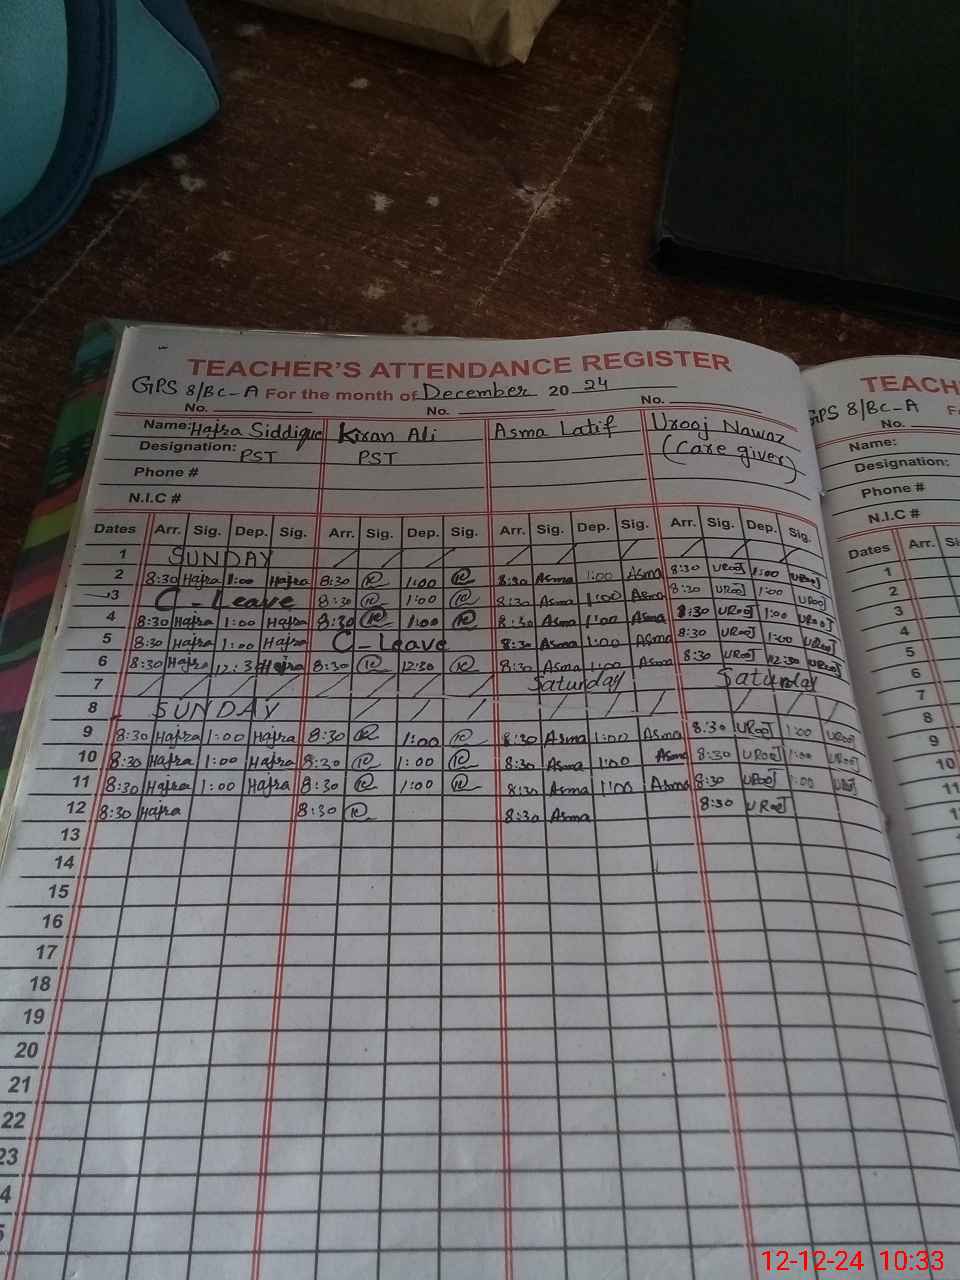 TEACHER'S ATTENDANCE REGISTER
GPS 8/BC-A For the month of December 20 24
No. No. No.
Name: Hajra Siddique Kiran Ali Asma Latif Urooj Nawaz
Designation: PST PST (Care giver)
Phone #
N.I.C #
Dates Arr. Sig. Dep. Sig. Arr. Sig. Dep. Sig. Arr. Sig. Dep. Sig. Arr. Sig. Dep. Sig.
1 SUNDAY
2 8:30 Hajra 1:00 Hajra 8:30 1:00 8:30 Asma 1:00 Asma 8:30 UROOJ 1:00 UROOJ
3 C-Leave 8:30 1:00 8:30 Asma 1:00 Asma 8:30 UROOJ 1:00 UROOJ
4 8:30 Hajra 1:00 Hajra 8:30 1:00 8:30 Asma 1:00 Asma 8:30 UROOJ 1:00 UROOJ
5 8:30 Hajra 1:00 Hajra C-Leave 8:30 Asma 1:00 Asma 8:30 UROOJ 1:00 UROOJ
6 8:30 Hajra 12:30 Hajra 8:30 12:30 8:30 Asma 1:00 Asma 8:30 UROOJ 12:30 UROOJ
7 Saturday Saturday
8 SUNDAY
9 8:30 Hajra 1:00 Hajra 8:30 1:00 8:30 Asma 1:00 Asma 8:30 UROOJ 1:00 UROOJ
10 8:30 Hajra 1:00 Hajra 8:30 1:00 8:30 Asma 1:00 Asma 8:30 UROOJ 1:00 UROOJ
11 8:30 Hajra 1:00 Hajra 8:30 1:00 8:30 Asma 1:00 Asma 8:30 UROOJ 1:00 UROOJ
12 8:30 Hajra 8:30 8:30 Asma 8:30 UROOJ
13
14
15
16
17
18
19
20
21
22
23
4
5
TEACH
GPS 8/BC-A F
No.
Name:
Designation:
Phone #
N.I.C #
Dates Arr. Si
1
2
3
4
5
6
7
8
9
10
11
12-12-24 10:33